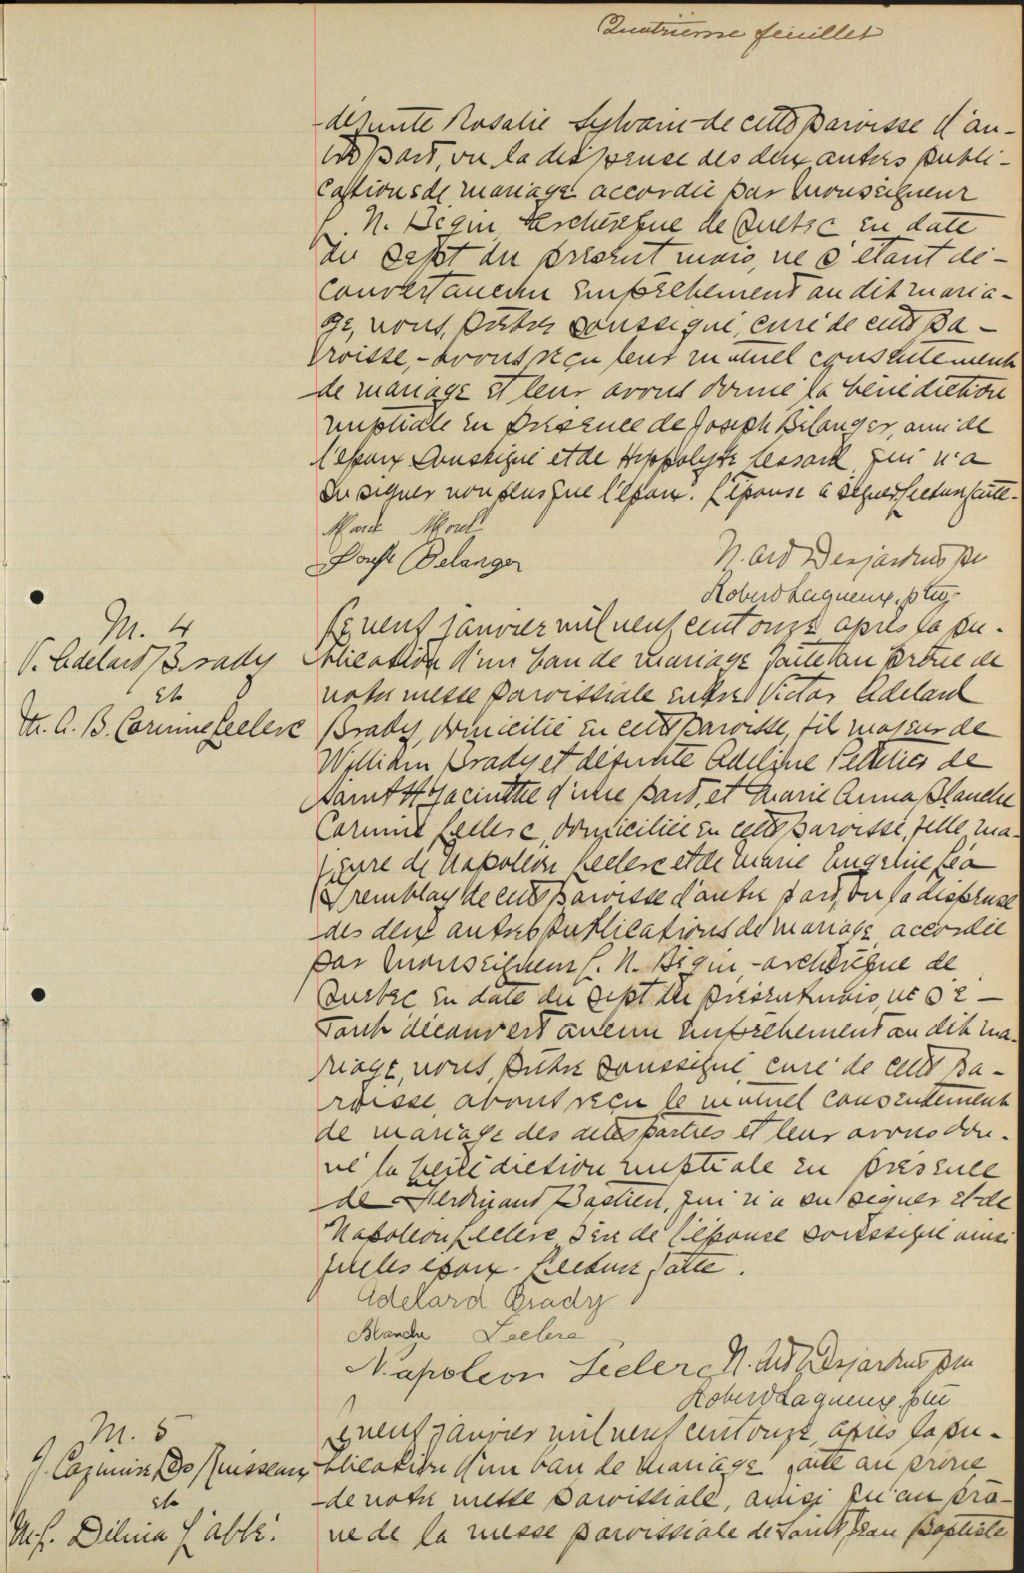 Quatrième feuillet
défunte Rosalie Sylvain de cette paroisse d'au-
tre part, vu la dispense des deux autres publi-
cations de mariage accordée par Monseigneur
L. N. Bégin, archevêque de Québec en date
du sept du présent mois, ne s'étant dé-
couvert aucun empêchement au dit maria-
ge, nous, prêtre soussigné, curé de cette pa-
roisse, avons reçu leur mutuel consentement
de mariage et leur avons donné la bénédiction
nuptiale en présence de Joseph Bélanger, ami de
l'époux soussigné et de Hippolyte Lessard qui n'a
su signer non plus que l'époux. L'épouse a signé. Lecture faite.
Morel
Joseph Belanger
N. Ard Desjardins ptre
Robert Lagueux, ptre
M. 4
V. Adelard Brady
et
M. A. B. Corinne Leclerc
Le neuf janvier mil neuf cent onze après la pu-
blication d'un ban de mariage faite au prône de
notre messe paroissiale entre Victor Adelard
Brady, domicilié en cette paroisse, fils majeur de
William Brady et défunte Adeline Pelletier de
Saint Hyacinthe d'une part, et Marie Anna Blanche
Corinne Leclerc, domiciliée en cette paroisse, fille ma-
jeure de Napoléon Leclerc et de Marie Eugénie Léa
Tremblay de cette paroisse d'autre part, vu la dispense
des deux autres publications de mariage accordée
par Monseigneur L. N. Bégin, archevêque de
Québec en date du sept du présent mois, ne s'é-
tant découvert aucun empêchement au dit ma-
riage, nous, prêtre soussigné, curé de cette pa-
roisse, avons reçu le mutuel consentement
de mariage des dites parties et leur avons don-
né la bénédiction nuptiale en présence
de Ferdinand Bastien, qui n'a su signer et de
Napoléon Leclerc, père de l'épouse soussigné ainsi
que les époux. Lecture faite.
Adelard Brady
Blanche Leclerc
Napoleon Leclerc
N. Ard Desjardins ptre
Robert Lagueux, ptre
M. 5
J. Cazimire Des Ruisseaux
et
M. L. Délina L'abbé.
Le neuf janvier mil neuf cent onze, après la pu-
blication d'un ban de mariage faite au prône
de notre messe paroissiale, ainsi qu'au prô-
ne de la messe paroissiale de Saint Jean Baptiste